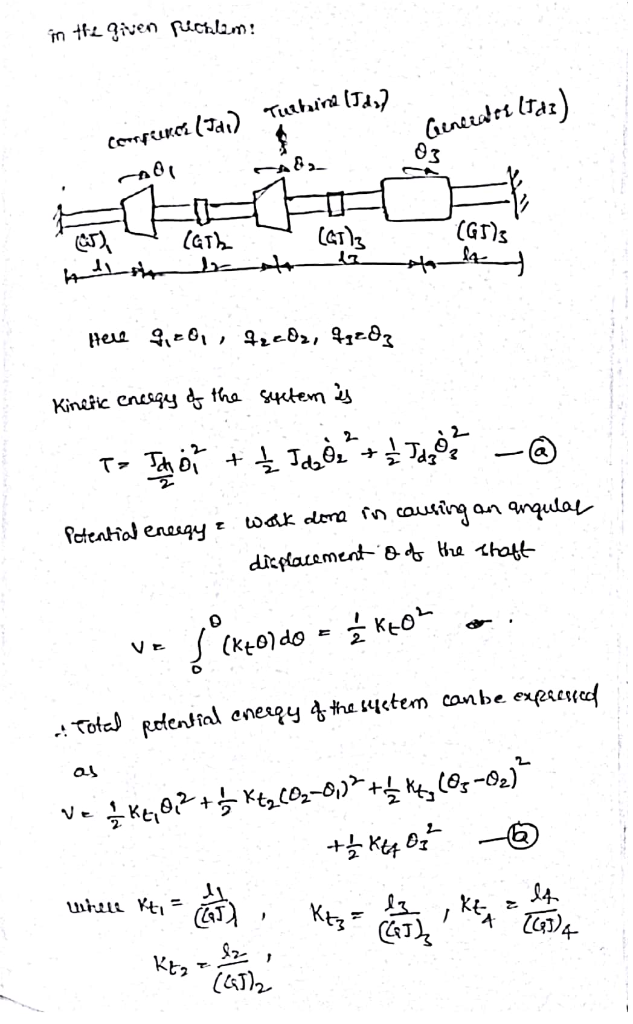 in the given problem:
compressor (Jd₁) Turbine (Jd₂) Generator (Jd₃)
θ1 θ2 θ3
(GJ)₁ (GJ)₂ (GJ)₃ (GJ)₃
l₁ l₂ l₃ l₄
Here q₁=θ₁, q₂=θ₂, q₃=θ₃
Kinetic energy of the system is
T = Jd₁/2 θ̇₁² + 1/2 Jd₂ θ̇₂² + 1/2 Jd₃ θ̇₃² — ⓐ
Potential energy = work done in causing an angular
displacement θ of the shaft
V = ∫₀^θ (Ktθ) dθ = 1/2 Ktθ²
∴ Total potential energy of the system can be expressed
as
V = 1/2 Kt₁θ₁² + 1/2 Kt₂(θ₂-θ₁)² + 1/2 Kt₃(θ₃-θ₂)²
+ 1/2 Kt₄ θ₃² — ⓑ
where Kt₁ = l₁/(GJ)₁, Kt₃ = l₃/(GJ)₃, Kt₄ = l₄/(GJ)₄
Kt₂ = l₂/(GJ)₂,